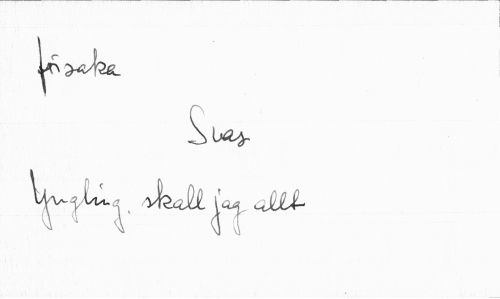 försaka
Svar
Yngling, skall jag allt